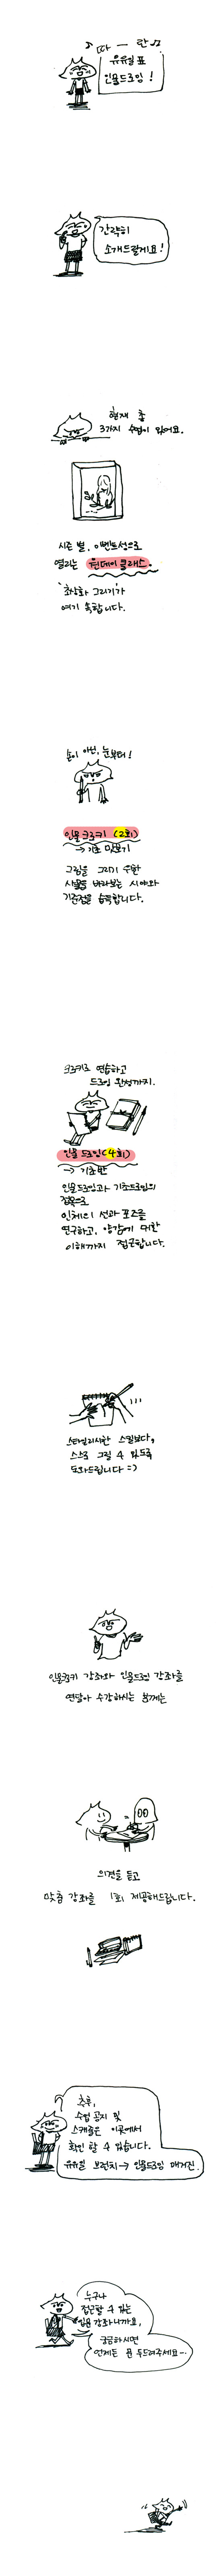 따 — 란
유유힐 표
인물드로잉 !
간략히
소개드릴게요 !
현재 총
3가지 수업이 있어요.
시즌 별, 이벤트성으로
열리는 원데이 클래스.
'초상화 그리기'가
여기 속합니다.
손이 아닌, 눈부터 !
인물 크로키 (2회)
→ 기초 맛보기
그림을 그리기 위한
사물을 바라보는 시야와
기준점을 습득합니다.
크로키로 연습하고
드로잉 완성까지.
인물 드로잉(4회)
→ 기초반
인물드로잉과 기초드로잉의
접목으로
인체의 선과 포즈를
연구하고, 양감에 대한
이해까지 접근합니다.
스타일리시한 스킬보다,
스스로 그릴 수 있도록
도와드립니다 =)
인물크로키 강좌와 인물드로잉 강좌를
연달아 수강하시는 분께는
의견을 듣고
맞춤 강좌를 1회 제공해드립니다.
추후,
수업 공지 및
스케줄은 이곳에서
확인 할 수 있습니다.
유유힐 브런치 → 인물드로잉 매거진.
누구나
접근할 수 있는
입문 강좌니까요,
궁금하시면
언제든 문 두드려주세요~